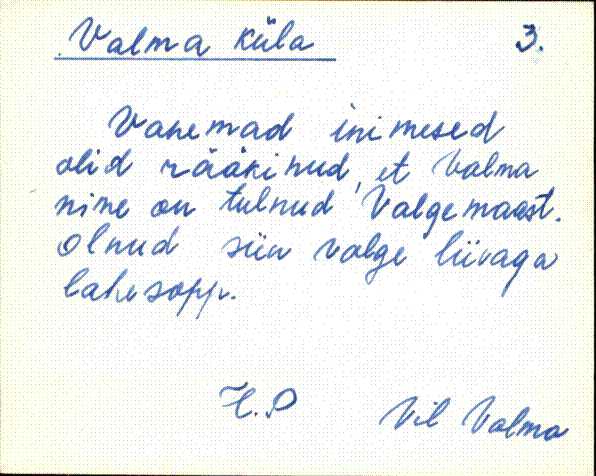 Valma küla 3.
Vanemad inimesed
olid rääkinud, et Valma
nime on tulnud Valgemaast.
Olnud siin valge liivaga
lahesopp.
H.P Vil Valma